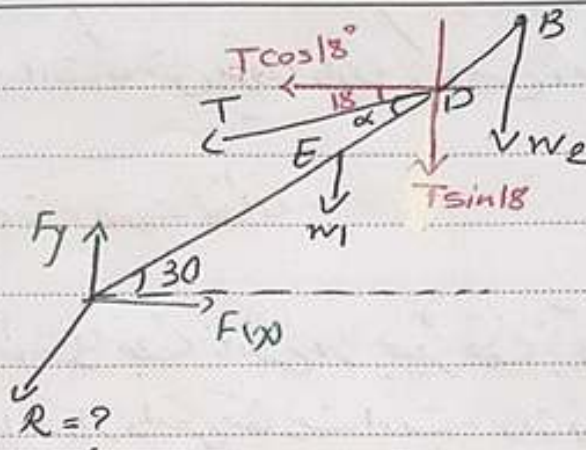 B
T cos18°
18
T
α
D
E
W2
T sin18
W1
Fy
30
F(x)
R = ?